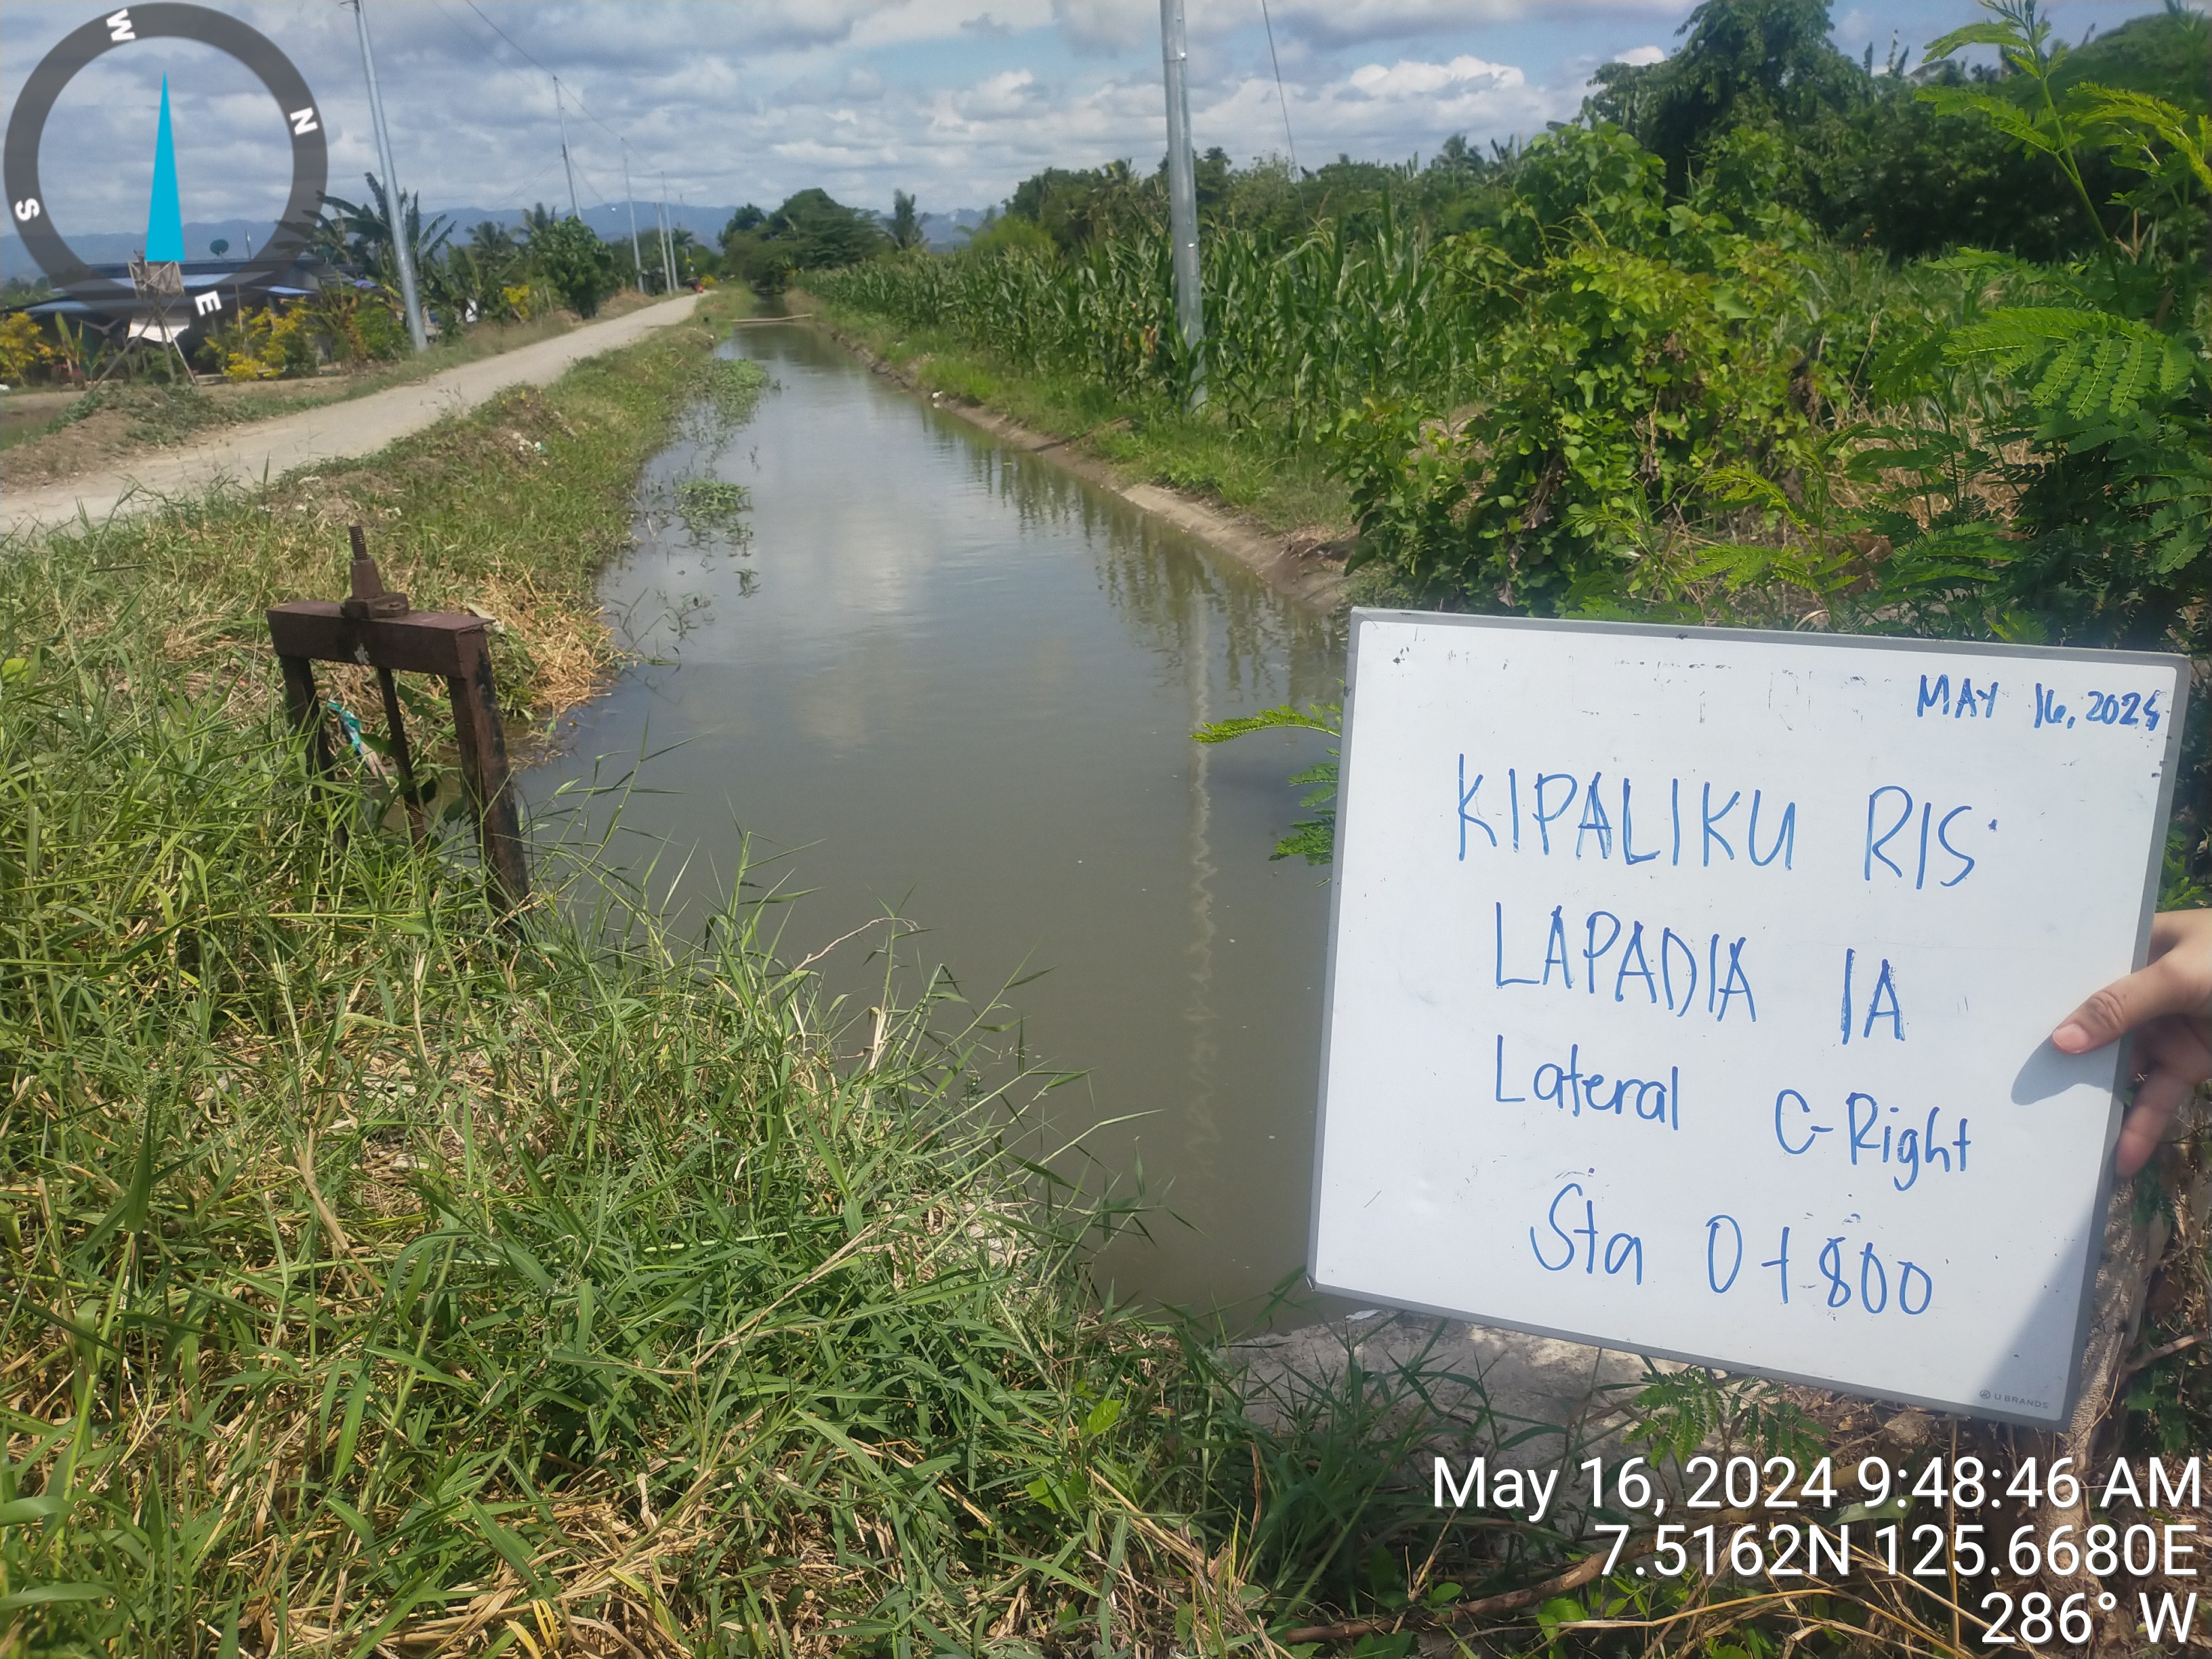 W
N
S
E
MAY 16, 2024
KIPALIKU RIS
LAPADIA IA
Lateral C-Right
Sta 0+800
U BRANDS
May 16, 2024 9:48:46 AM
7.5162N 125.6680E
286° W